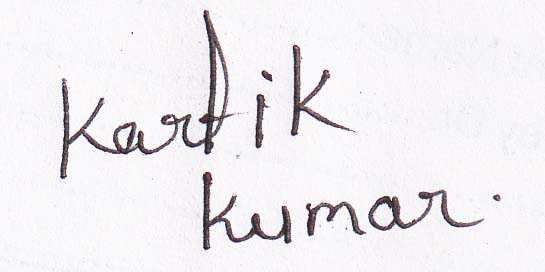 Kartik
Kumar.